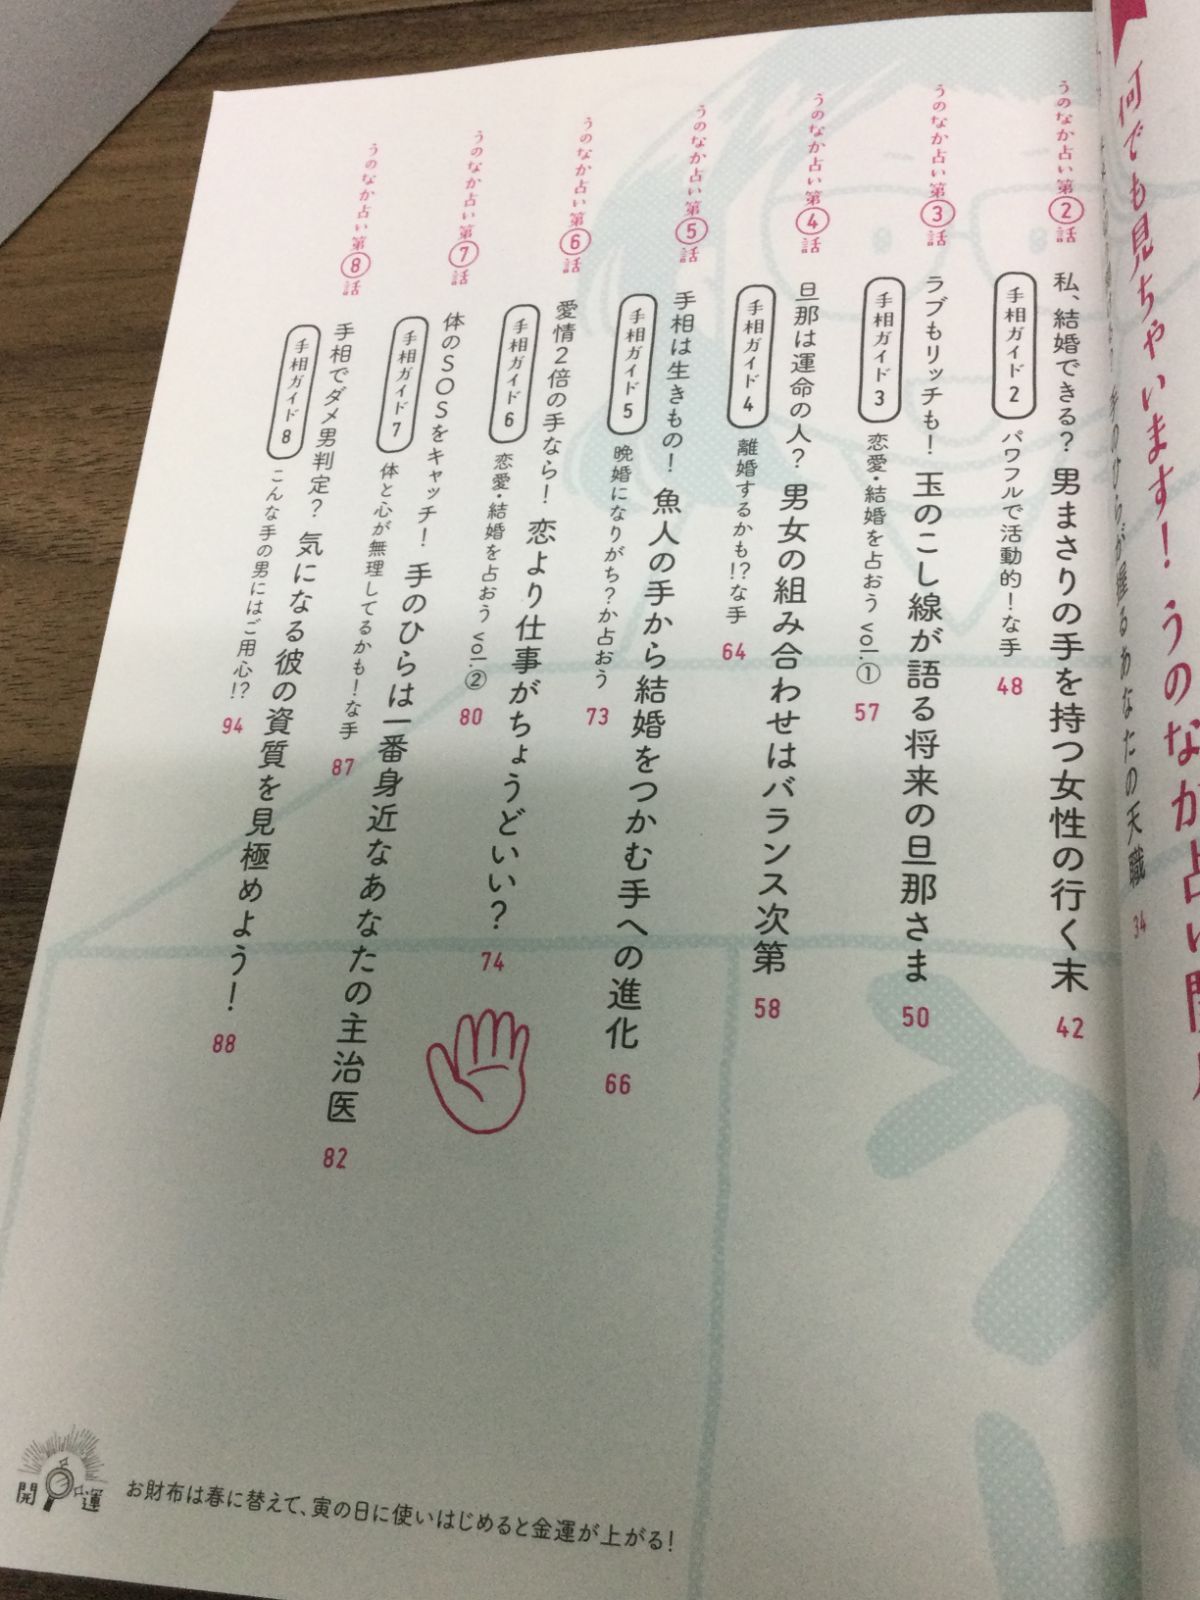 何でも見ちゃいます!うのなか占い開
あなたの天職 34
うのなか占い第②話
私、結婚できる? 男まさりの手を持つ女性の行く末 42
手相ガイド2 パワフルで活動的!な手 48
うのなか占い第③話
ラブもリッチも! 玉のこし線が語る将来の旦那さま 50
手相ガイド3 恋愛・結婚を占おう vol.① 57
うのなか占い第④話
旦那は運命の人? 男女の組み合わせはバランス次第 58
手相ガイド4 離婚するかも!?な手 64
うのなか占い第⑤話
手相は生きもの! 魚人の手から結婚をつかむ手への進化 66
手相ガイド5 晩婚になりがち?か占おう 73
うのなか占い第⑥話
愛情2倍の手なら! 恋より仕事がちょうどいい? 74
手相ガイド6 恋愛・結婚を占おう vol.② 80
うのなか占い第⑦話
体のSOSをキャッチ! 手のひらは一番身近なあなたの主治医 82
手相ガイド7 体と心が無理してるかも!な手 87
うのなか占い第⑧話
手相でダメ男判定? 気になる彼の資質を見極めよう! 88
手相ガイド8 こんな手の男にはご用心!? 94
開運
お財布は春に替えて、寅の日に使いはじめると金運が上がる!